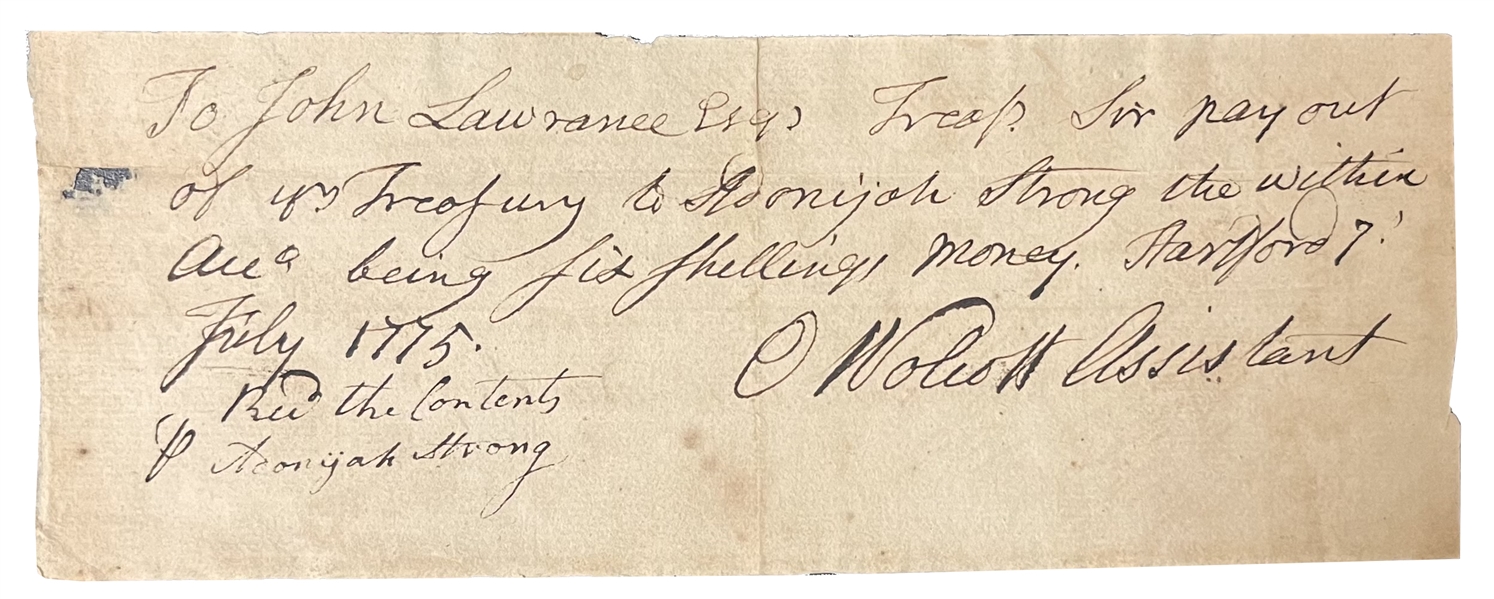 To John Lawrance Esqr Treasr. Sir pay out
of yr Treasury to Adonijah Strong the within
Acct being six shellings money. Hartford 7.
July 1775. O Wolcott Assistant
Recd the Contents
⅌ Adonijah Strong